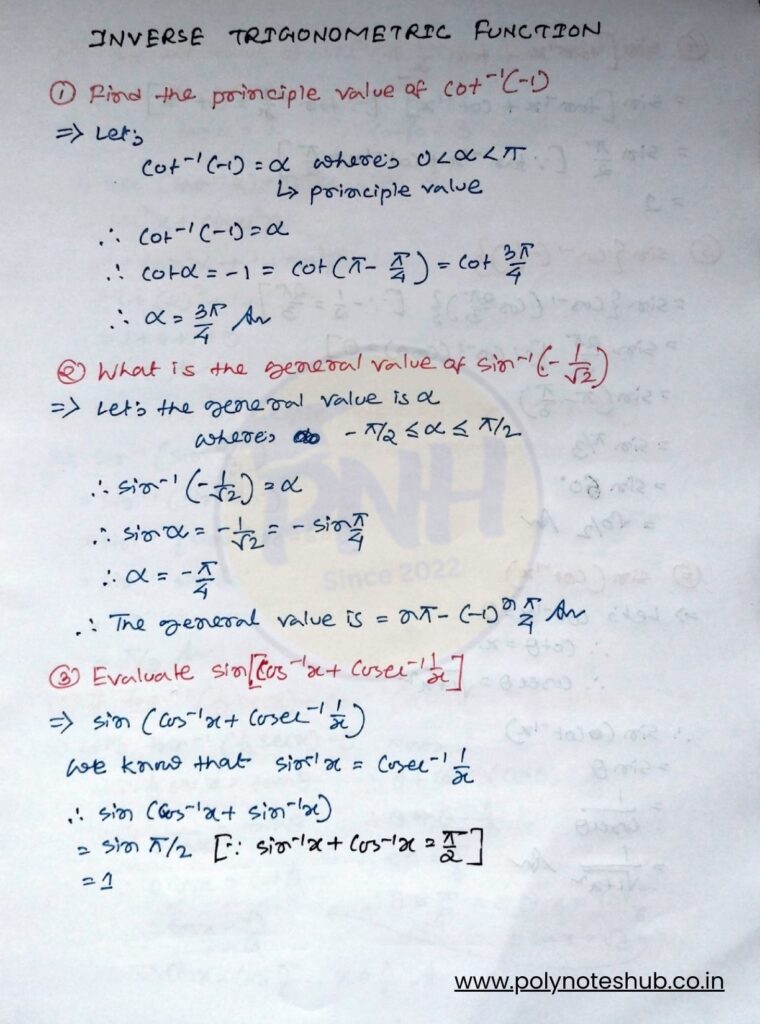 INVERSE TRIGONOMETRIC FUNCTION
① Find the principle value of cot⁻¹(-1)
⇒ Let's
cot⁻¹(-1) = α where's 0<α<π
↳ principle value
∴ cot⁻¹(-1) = α
∴ cotα = -1 = cot(π - π/4) = cot 3π/4
∴ α = 3π/4 Ans
② What is the general value of sin⁻¹(-1/√2)
⇒ Let's the general value is α
where's -π/2 ≤ α ≤ π/2
∴ sin⁻¹(-1/√2) = α
∴ sin α = -1/√2 = - sin π/4
∴ α = -π/4
∴ The general value is = nπ - (-1)ⁿ π/4 Ans
③ Evaluate sin[cos⁻¹x + cosec⁻¹ 1/x]
⇒ sin (cos⁻¹x + cosec⁻¹ 1/x)
we know that sin⁻¹x = cosec⁻¹ 1/x
∴ sin (cos⁻¹x + sin⁻¹x)
= sin π/2 [∵ sin⁻¹x + cos⁻¹x = π/2]
= 1
PNH
Since 2022
www.polynoteshub.co.in